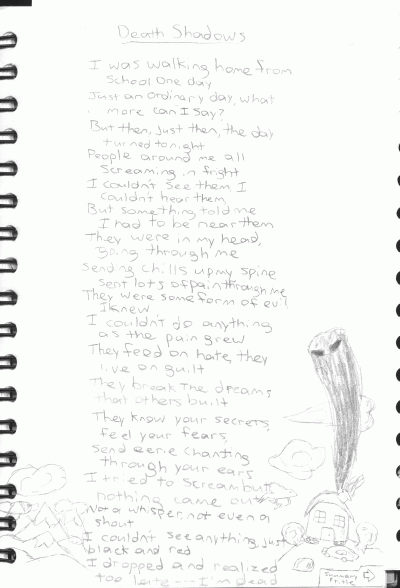 Death Shadows
I was walking home from
School One day
Just an Ordinary day, what
more can I say?
But then, just then, the day
turned to night
People around me all
Screaming in fright
I couldn't see them I
couldn't hear them
But something told me
I had to be near them
They were in my head,
going through me
sending chills up my spine
sent lots of pain through me
They were some form of evil
I knew
I couldn't do anything
as the pain grew
They feed on hate, they
live on guilt
They break the dreams
that others built
They know your secrets,
feel your fears,
send eerie chanting
through your ears
I tried to scream but
nothing came out
Not a whisper, not even a
shout
I couldn't see anything, just
black and red
I dropped and realized
too late---I'm dead